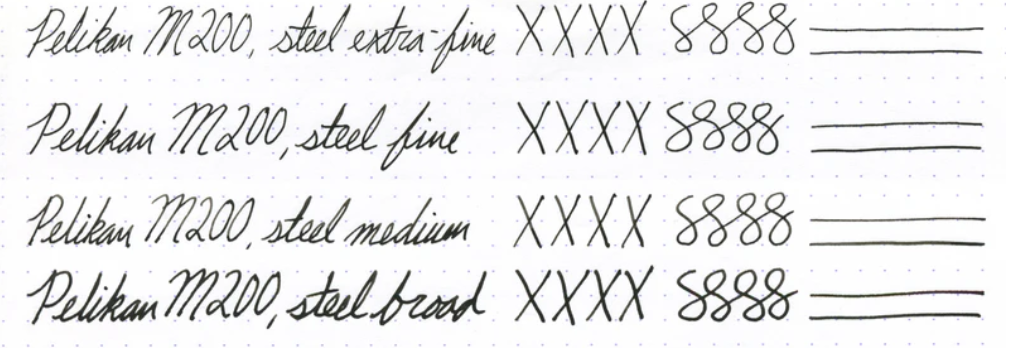 Pelikan M200, steel extra-fine XXXX 8888
Pelikan M200, steel fine XXXX 8888
Pelikan M200, steel medium XXXX 8888
Pelikan M200, steel broad XXXX 8888